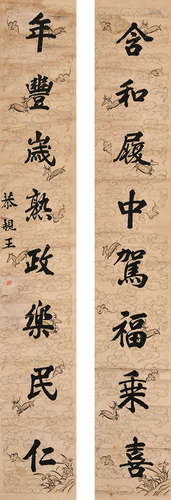 含和履中駕福乘喜
年豐歲熟政樂民仁
恭親王